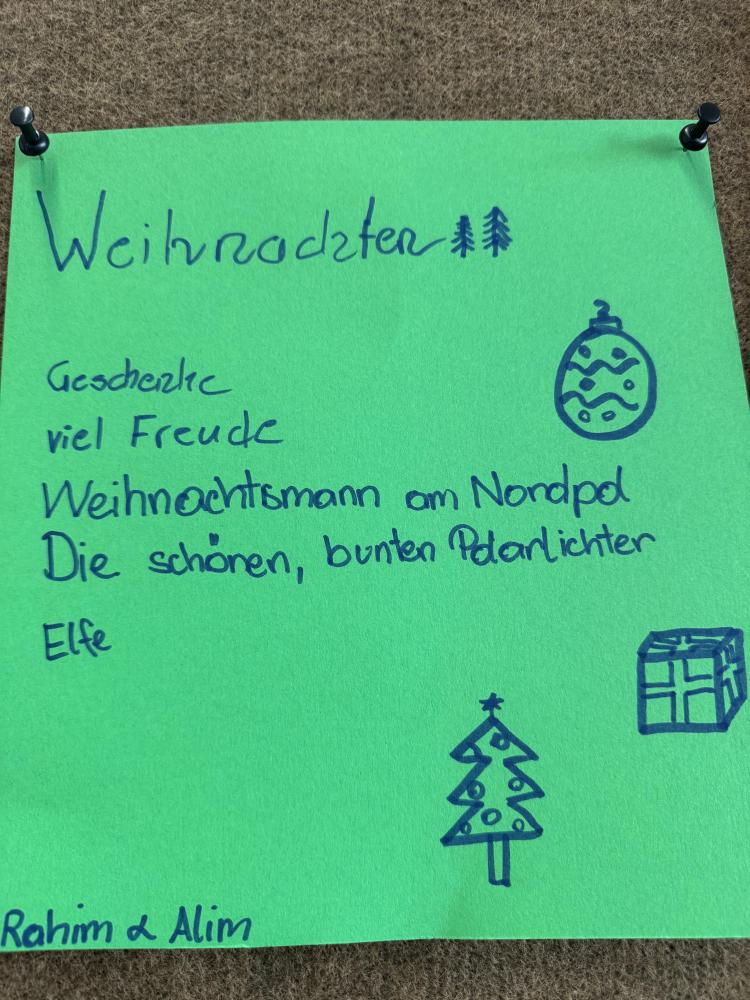 Weihnachten
Geschenke
viel Freude
Weihnachtsmann am Nordpol
Die schönen, bunten Polarlichter
Elfe
Rahim & Alim